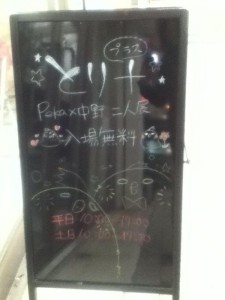 プラス
とり＋
Poka×中野 二人展
入場無料
平日 10:00~19:00
土日 10:00~17:00